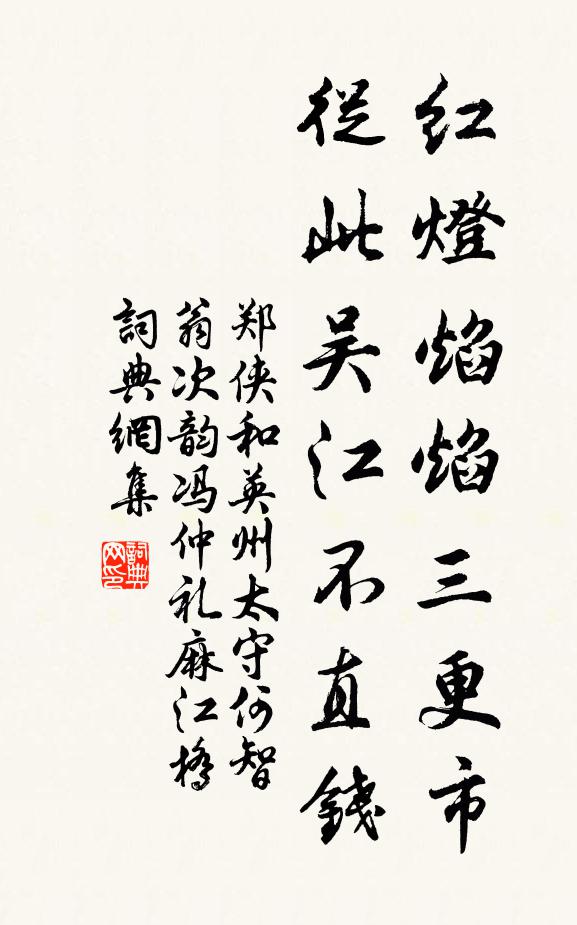 紅燈焰焰三更市
從此吴江不直錢
郑侠和英州太守何智
翁次韵冯仲礼麻江橋
詞典網集
詞典网印